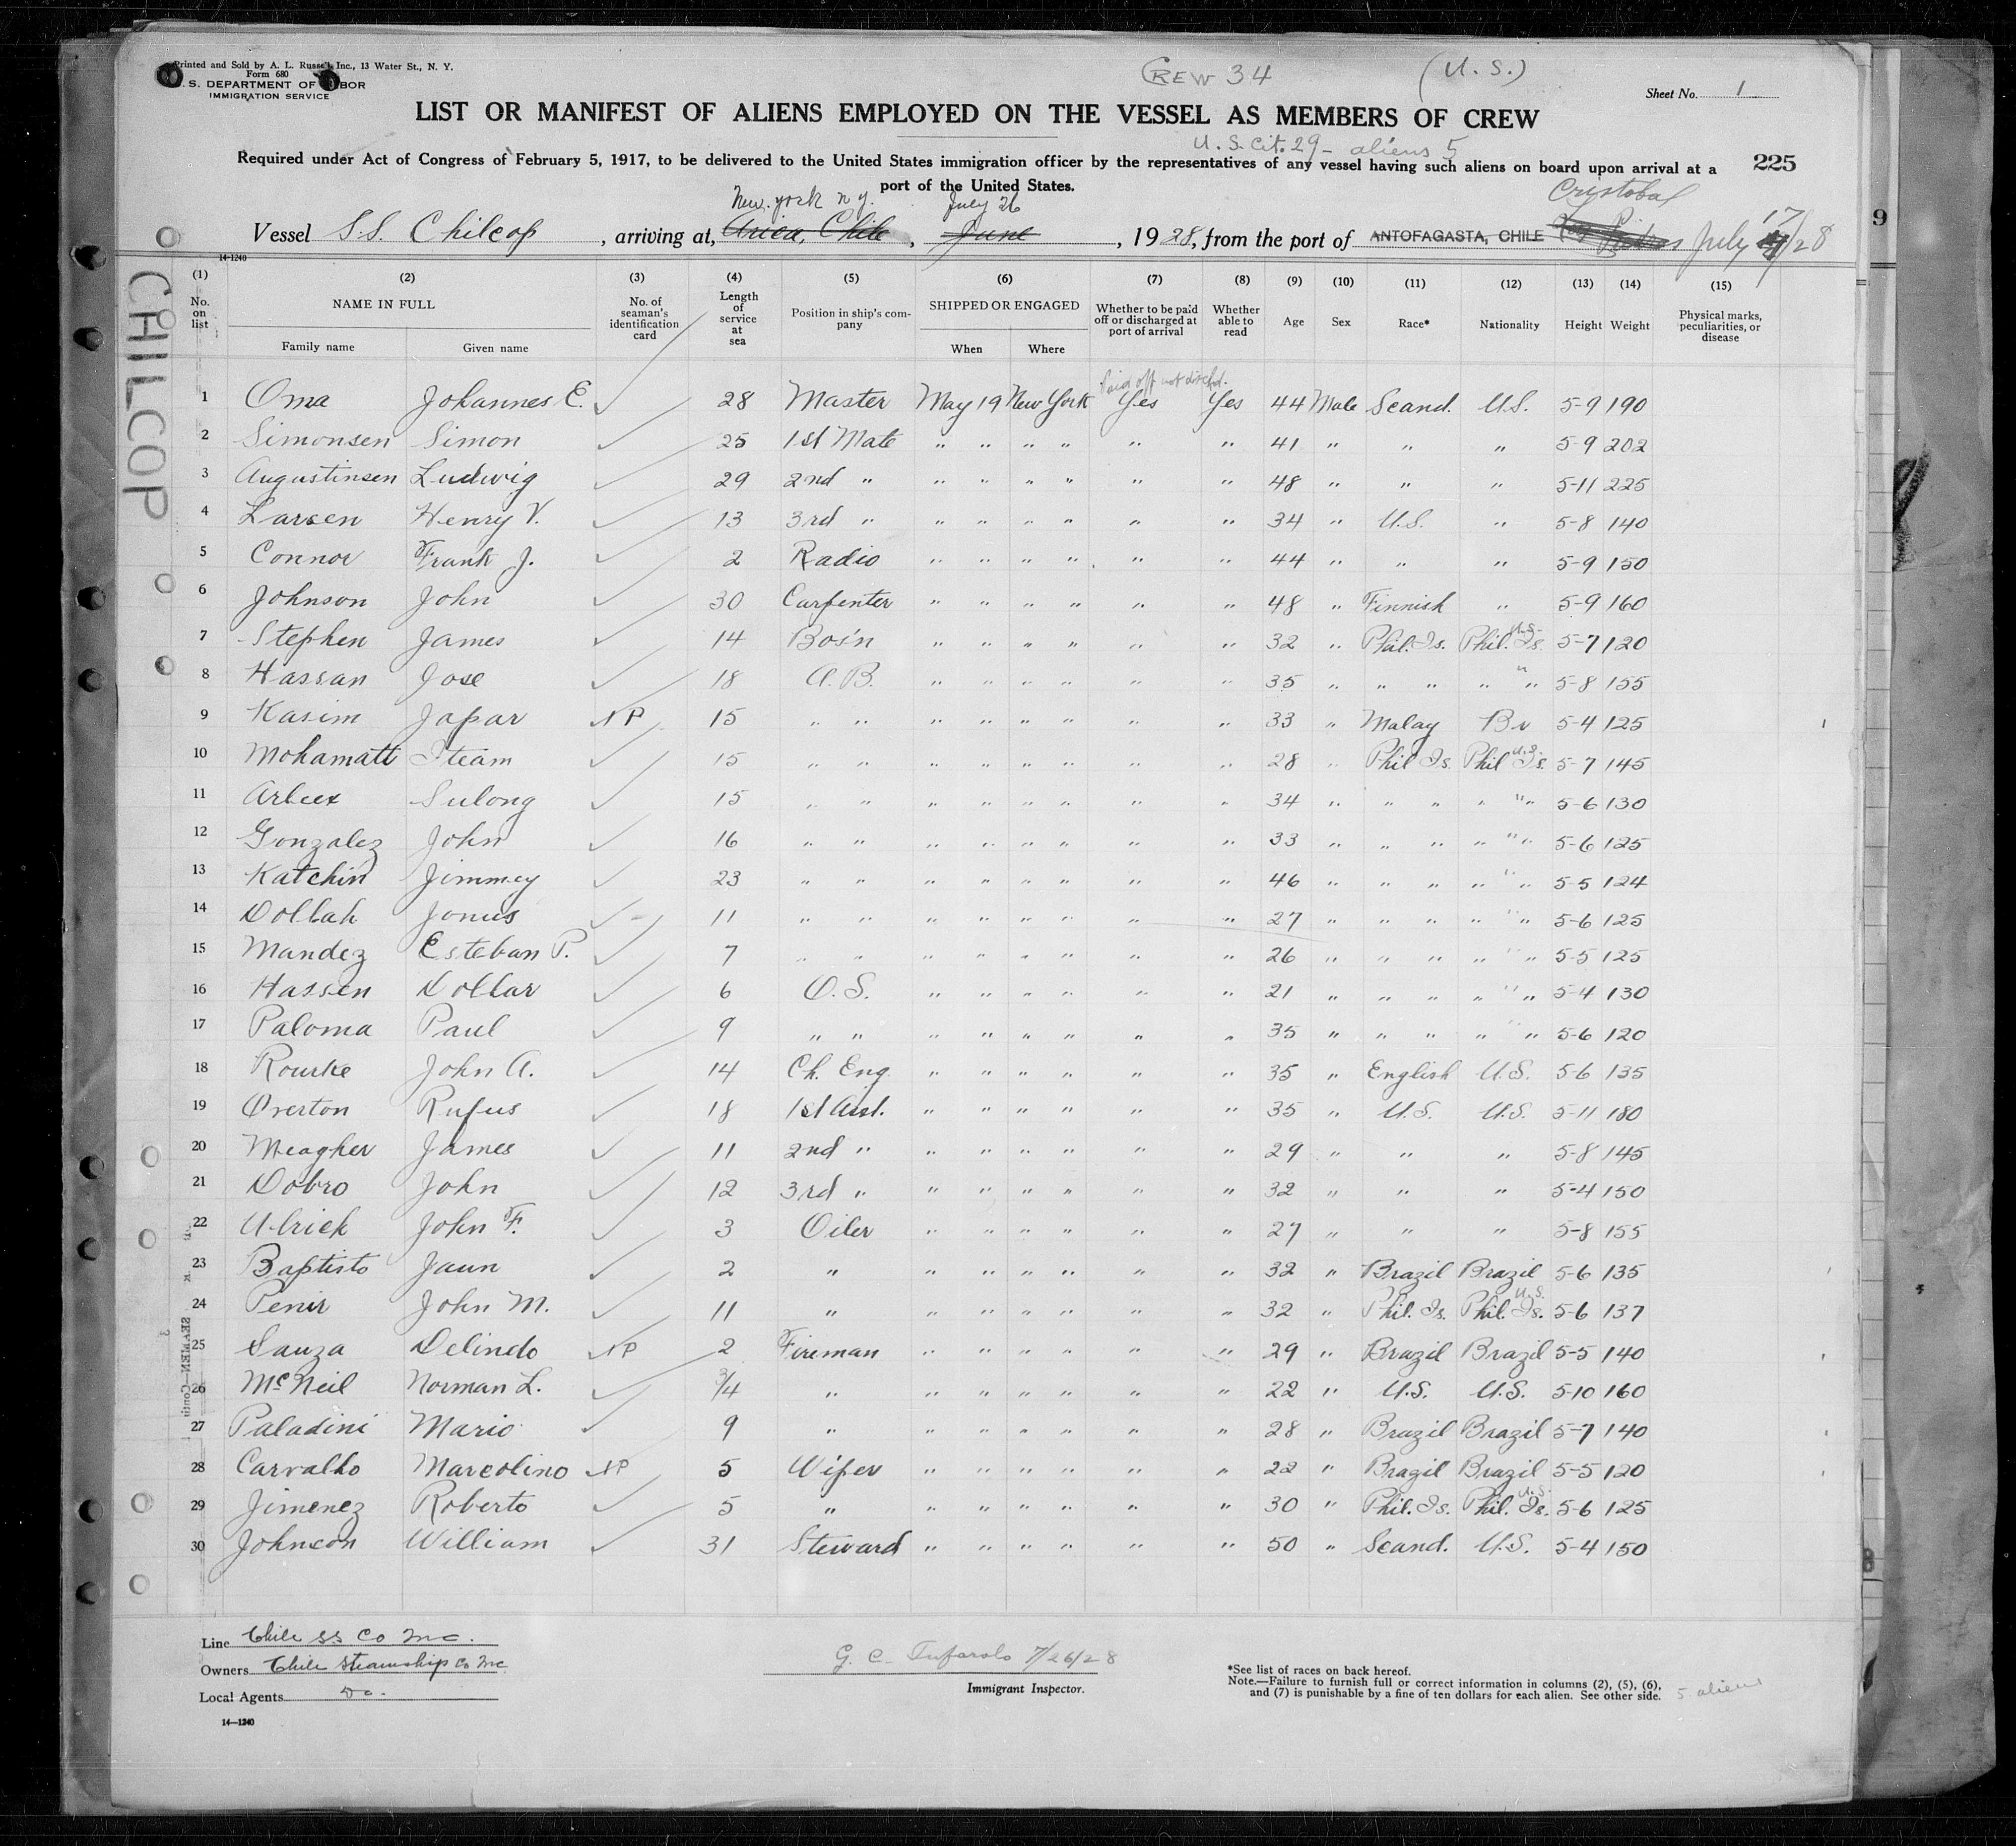 Printed and Sold by A. L. Russell, Inc., 13 Water St., N. Y.
Form 680
U. S. DEPARTMENT OF LABOR
IMMIGRATION SERVICE
CREW 34 (U. S.)
Sheet No. 1
LIST OR MANIFEST OF ALIENS EMPLOYED ON THE VESSEL AS MEMBERS OF CREW
U. S. Cit. 29 - aliens 5
Required under Act of Congress of February 5, 1917, to be delivered to the United States immigration officer by the representatives of any vessel having such aliens on board upon arrival at a
port of the United States.
225
New York N Y. July 26 Cristobal
Vessel S.S. Chilcop, arriving at, Arica, Chile, June, 1928, from the port of ANTOFAGASTA, CHILE July 17/28
9
14-1240
CHILCOP
(1) (2) (3) (4) (5) (6) (7) (8) (9) (10) (11) (12) (13) (14) (15)
No. on list NAME IN FULL Family name Given name No. of seaman's identification card Length of service at sea Position in ship's company SHIPPED OR ENGAGED When Where Whether to be paid off or discharged at port of arrival Whether able to read Age Sex Race* Nationality Height Weight Physical marks, peculiarities, or disease
Paid off not dischd.
1 Oma Johannes E. ✓ 28 Master May 19 New York Yes Yes 44 Male Scand. U.S. 5-9 190
2 Simonsen Simon ✓ 25 1st Mate " " " " " " 41 " " " 5-9 202
3 Augustinsen Ludwig ✓ 29 2nd " " " " " " " 48 " " " 5-11 225
4 Larsen Henry V. ✓ 13 3rd " " " " " " " 34 " U.S. " 5-8 140
5 Connor Frank J. ✓ 2 Radio " " " " " " 44 " " " 5-9 150
6 Johnson John ✓ 30 Carpenter " " " " " " 48 " Finnish " 5-9 160
7 Stephen James ✓ 14 Bos'n " " " " " " 32 " Phil. Is. Phil. Is. U.S. 5-7 120
8 Hassan Jose ✓ 18 A.B. " " " " " " 35 " " " " " " 5-8 155
9 Kasim Japar NP 15 " " " " " " " " 33 " Malay Br 5-4 125
10 Mohamatt Iteam ✓ 15 " " " " " " " " 28 " Phil Is. Phil Is. U.S. 5-7 145
11 Sulong ✓ 15 " " " " " " " " 34 " " " " " " 5-6 130
12 Gonzalez John ✓ 16 " " " " " " " " 33 " " " " " " 5-6 125
13 Katchin Jimmey ✓ 23 " " " " " " " " 46 " " " " " " 5-5 124
14 Dollah Jonus ✓ 11 " " " " " " " " 27 " " " " " " 5-6 125
15 Mandez Esteban P. ✓ 7 " " " " " " " " 26 " " " " " " 5-5 125
16 Hassen Dollar ✓ 6 O.S. " " " " " " 21 " " " " " " 5-4 130
17 Paloma Paul ✓ 9 " " " " " " " " 35 " " " " " " 5-6 120
18 Rourke John A. ✓ 14 Ch. Eng. " " " " " " 35 " English U.S. 5-6 135
19 Overton Rufus ✓ 18 1st Asst. " " " " " " 35 " U.S. U.S. 5-11 180
20 Meagher James ✓ 11 2nd " " " " " " " 29 " " " 5-8 145
21 Dobro John ✓ 12 3rd " " " " " " " 32 " " " 5-4 150
22 Ulrich John F. ✓ 3 Oiler " " " " " " 27 " " " 5-8 155
23 Baptisto Jaun ✓ 2 " " " " " " " 32 " Brazil Brazil 5-6 135
24 Penir John M. ✓ 11 " " " " " " " 32 " Phil. Is. Phil. Is. U.S. 5-6 137
25 Sauza Delindo NP 2 Fireman " " " " " " 29 " Brazil Brazil 5-5 140
26 McNeil Norman L. ✓ 3/4 " " " " " " " 22 " U.S. U.S. 5-10 160
27 Paladini Mario ✓ 9 " " " " " " " 28 " Brazil Brazil 5-7 140
28 Carvalho Marcolino NP 5 Wiper " " " " " " 22 " Brazil Brazil 5-5 120
29 Jimenez Roberto ✓ 5 " " " " " " " 30 " Phil. Is. Phil. Is. U.S. 5-6 125
30 Johnson William ✓ 31 Steward " " " " " " 50 " Scand. U.S. 5-4 150
Line Chile SS Co Inc.
Owners Chile Steamship Co Inc
Local Agents Do.
14-1240
G. C. Tufarolo 7/26/28
Immigrant Inspector.
*See list of races on back hereof.
Note.—Failure to furnish full or correct information in columns (2), (5), (6),
and (7) is punishable by a fine of ten dollars for each alien. See other side.
5 aliens